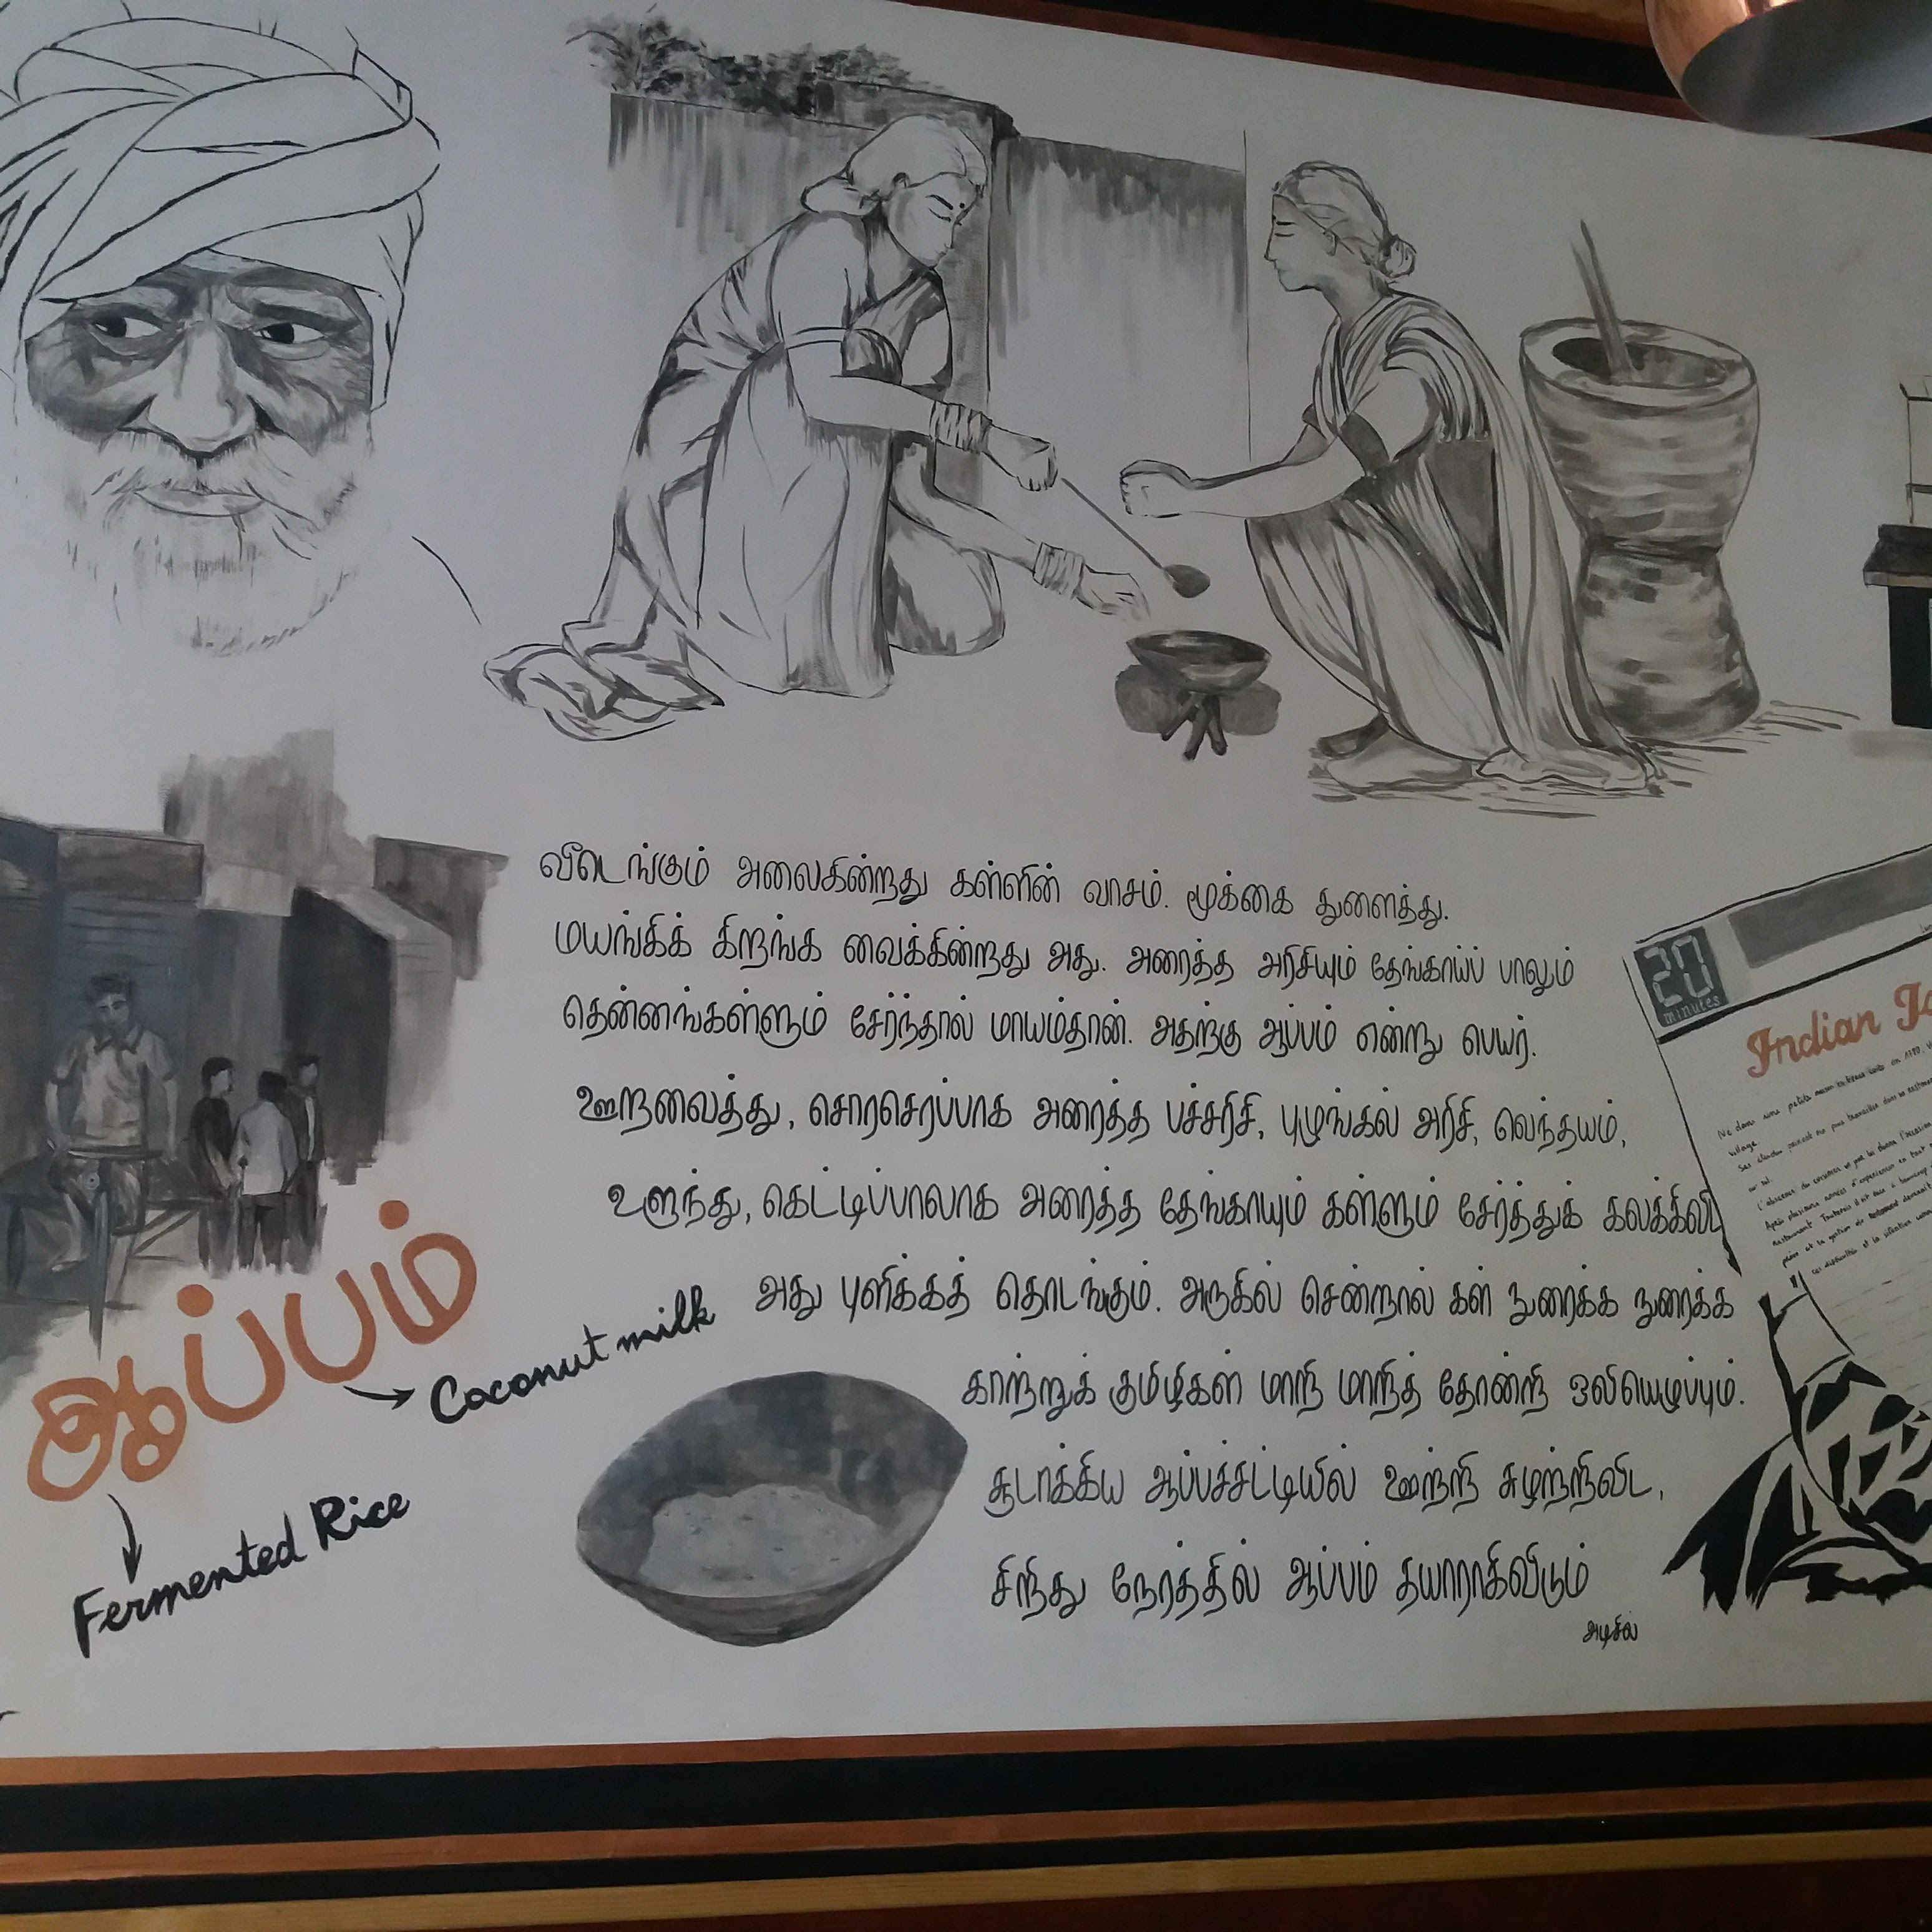 வீடெங்கும் அலைகின்றது கள்ளின் வாசம். மூக்கை துளைத்து.
மயங்கிக் கிறங்க வைக்கின்றது அது. அரைத்த அரிசியும் தேங்காய்ப் பாலும்
தென்னங்கள்ளும் சேர்ந்தால் மாயம்தான். அதற்கு ஆப்பம் என்று பெயர்.
ஊறவைத்து, சொரசெரப்பாக அரைத்த பச்சரிசி, புழுங்கல் அரிசி, வெந்தயம்,
உளுந்து, கெட்டிப்பாலாக அரைத்த தேங்காயும் கள்ளும் சேர்த்துக் கலக்கிவிட
அது புளிக்கத் தொடங்கும். அருகில் சென்றால் கள் நுரைக்க நுரைக்க
காற்றுக் குமிழிகள் மாறி மாறித் தோன்றி ஒலியெழுப்பும்.
சூடாக்கிய ஆப்பச்சட்டியில் ஊற்றி சுழற்றிவிட,
சிறிது நேரத்தில் ஆப்பம் தயாராகிவிடும்
அடிசில்
ஆப்பம்
Coconut milk
Fermented Rice
20
minutes
Indian
village